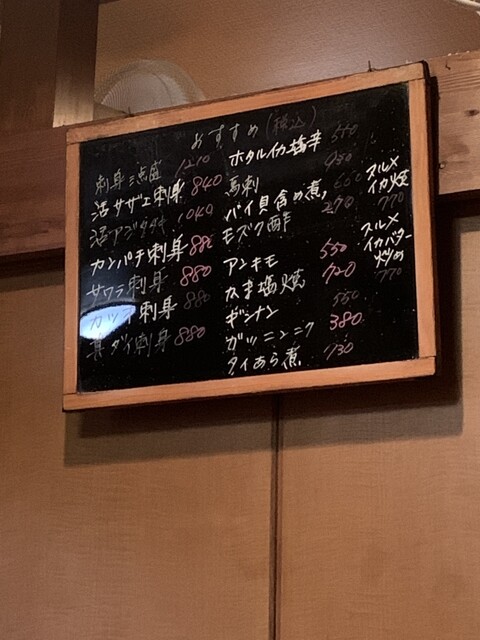 おすすめ(税込)
刺身三点盛 1210
活サザエ刺身 840
活アワビ刺身 1040
カンパチ刺身 880
サワラ刺身 880
カツオ刺身 880
真ダイ刺身 880
ホタルイカ塩辛 550
馬刺 950
バイ貝含め煮 660
モズク酢 290
アンキモ 550
かま塩焼 720
ギンナン 550
ガツニンニク 380
タイあら煮 730
スルメ
イカ焼
770
スルメ
イカバター
炒め
770